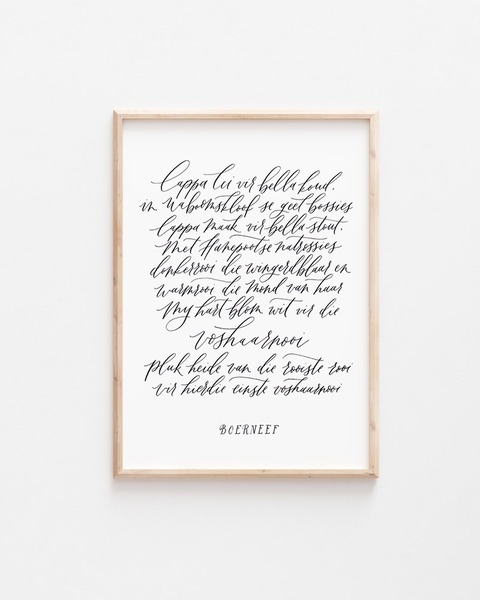 Lappa lei vir bella koud.
in Waboomskloof se geel bossies
lappa maak vir bella stout.
Met Hanepootse natrossies
donkerrooi die wingerdblaar en
warmrooi die mond van haar
My hart blom wit vir die
voshaarnooi
pluk heide van die rooiste rooi
vir hierdie einste voshaarnooi
BOERNEEF